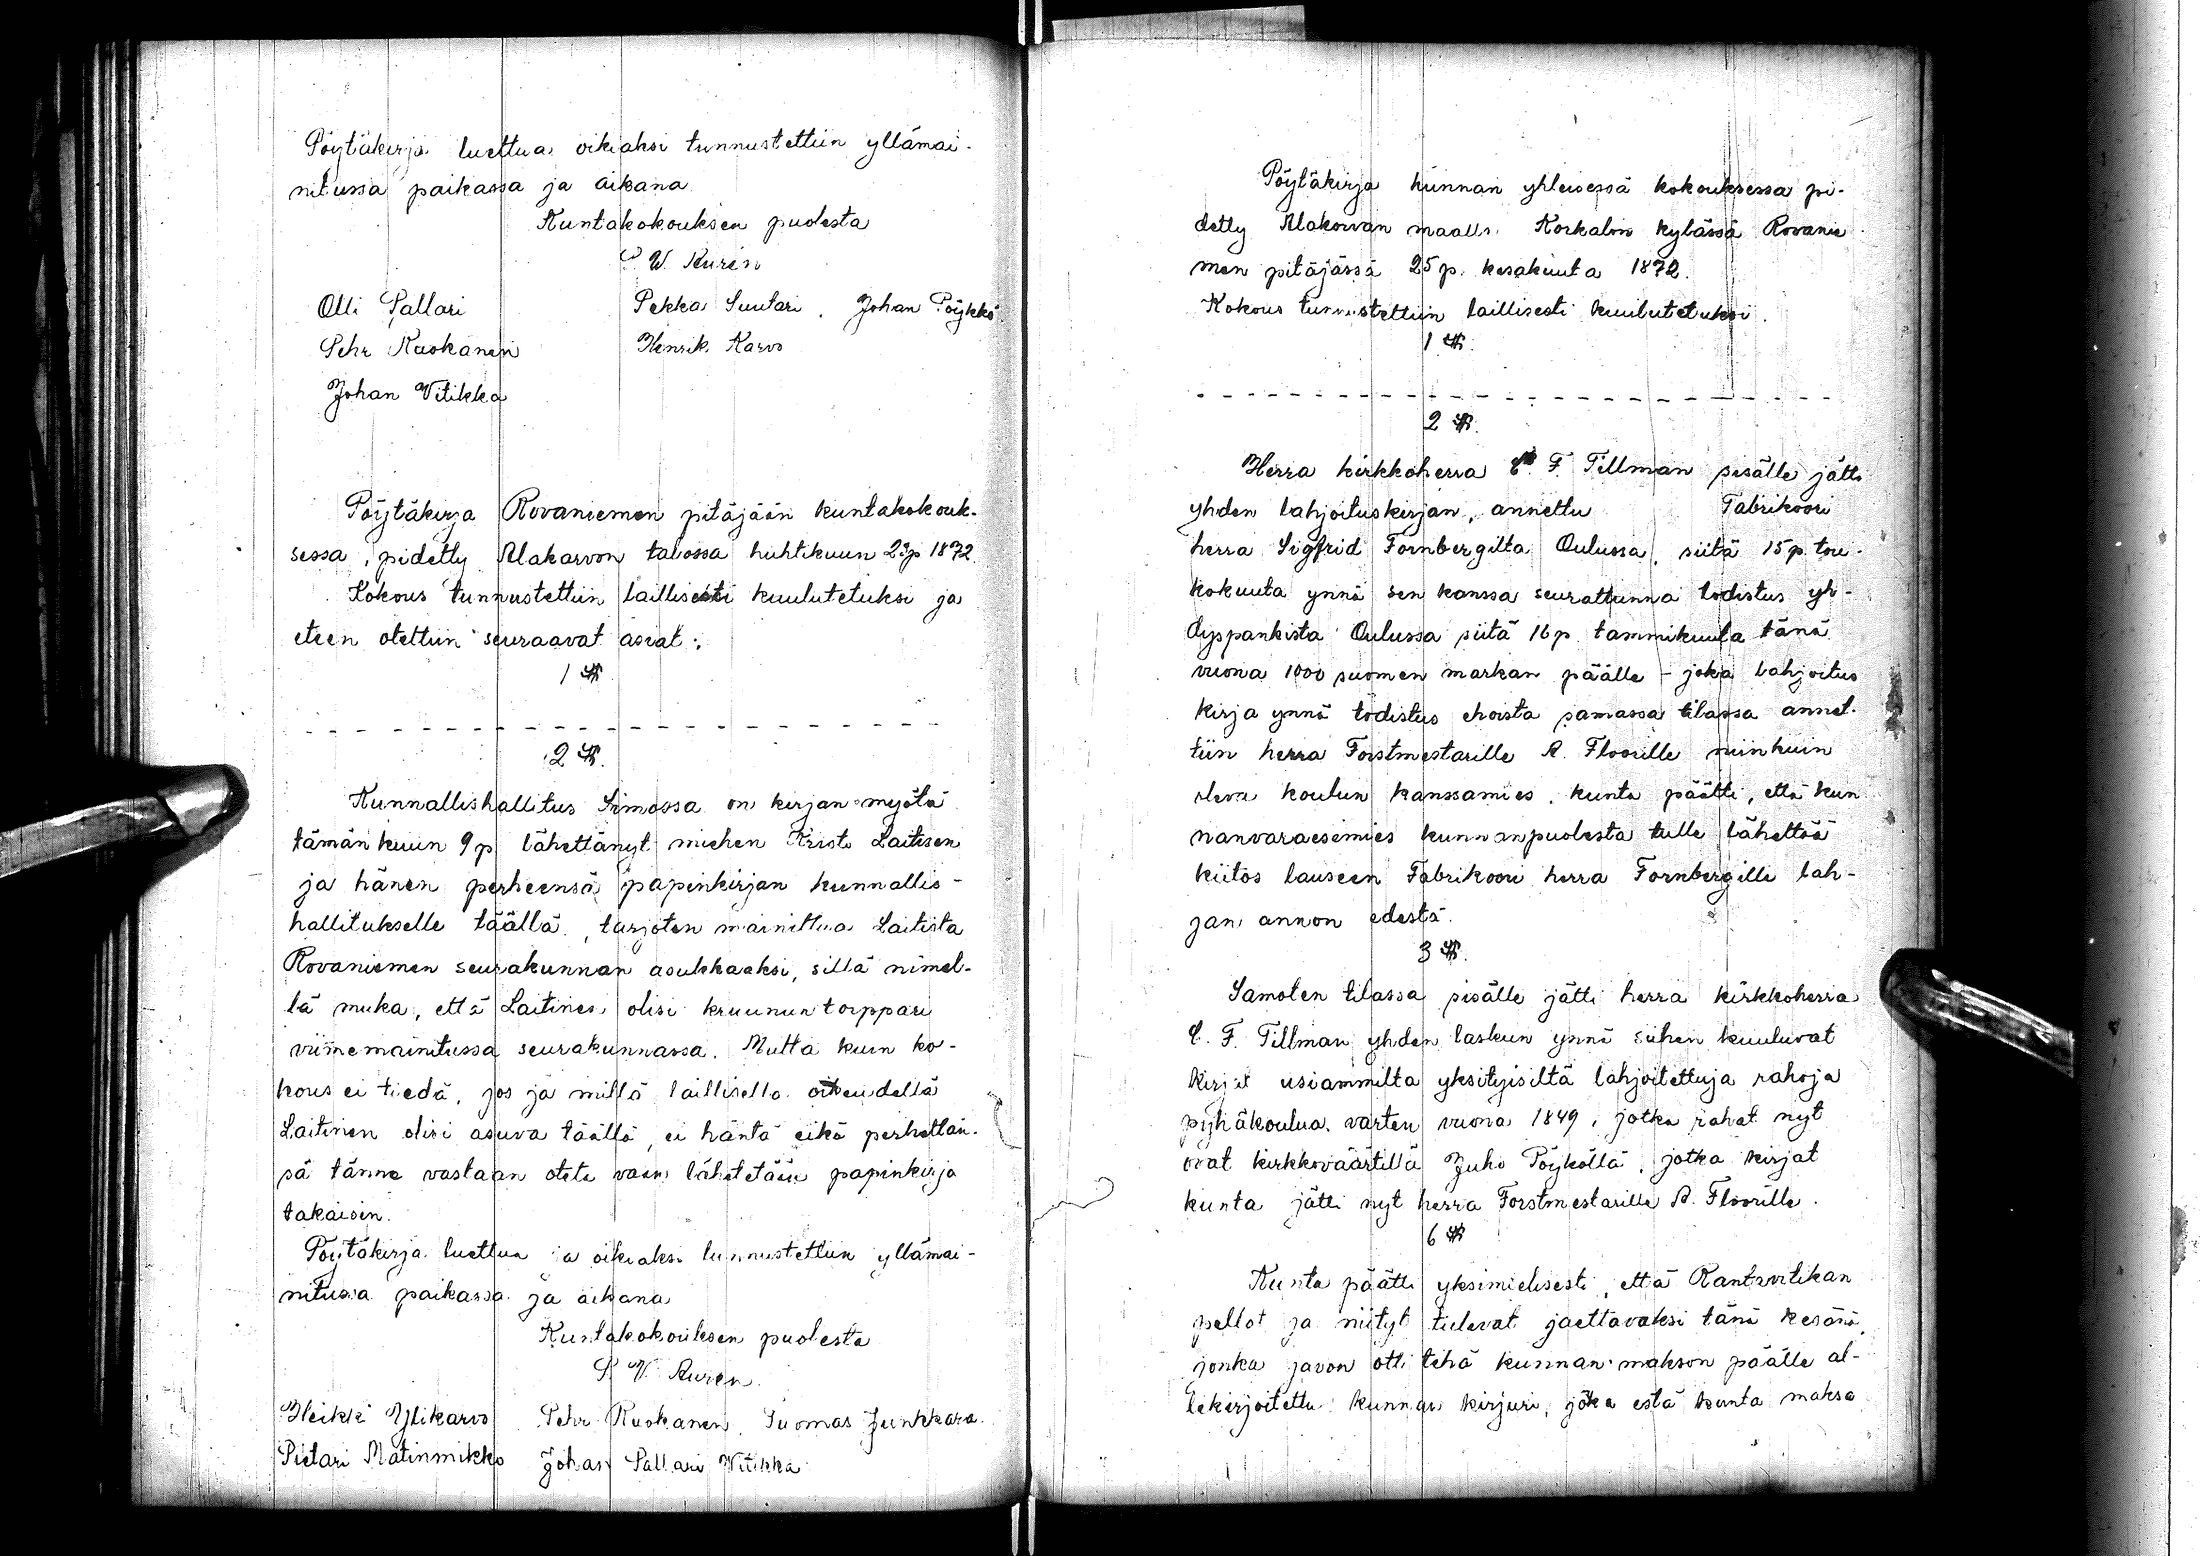 Pöytäkirja luettua oikiaksi tunnustettiin yllämai-
nitussa paikassa ja aikana
Kuntakokouksen puolesta
W. Kurén
Olli Pallari Pekka Suutari. Johan Pöykkö
Pehr Ruokanen Henrik Karvo
Johan Vitikka
Pöytäkirja Rovaniemen pitäjään kuntakokouk-
sessa, pidetty Alakarvon talossa huhtikuun p 1872
Kokous tunnustettiin laillisesti kuulutetuksi ja
eteen otettiin seuraavat asiat:
1 §
2 §.
Kunnallishallitus Simossa on kirjan myötä
tämän kuun 9 p lähettänyt miehen Kristo Laitisen
ja hänen perheensä papinkirjan kunnallis-
hallitukselle täällä, tarjoten mainittua Laitista
Rovaniemen seurakunnan asukkaaksi, sillä nimel-
lä muka, että Laitinen olisi kruunun torppari
viimemainitussa seurakunnassa. Mutta kuin ko-
kous ei tiedä, jos ja millä laillisella oikeudella
Laitinen olisi asuva täällä, ei häntä eikä perhettän-
sä tänne vastaan oteta vaan lähetetään papinkirja
takaisin.
Pöytäkirja luettua ja oikiaksi tunnustettiin yllämai-
nitussa paikassa ja aikana
Kuntakokouksen puolesta
W. Kurén.
Heikki Ylikarvo Pehr Ruokanen, Tuomas Junkkara.
Pietari Matinmikko Johan Pallari Vitikka
Pöytäkirja kunnan yhteisessä kokouksessa pi-
detty Alakorvan maalla Korkalon kylässä Rovanie
men pitäjässä 25 p. kesakuuta 1872.
Kokous tunnustettiin laillisesti kuulutetuksi.
1 §.
2 §.
Herra kirkkoherra C. F. Tillman sisälle jätti
yhden lahjoituskirjan, annettu Fabrikoori
herra Sigfrid Fornbergilta Oulussa, siitä 15 p. tou-
kokuuta ynnä sen kanssa seurattunna todistus yh-
dyspankista Oulussa siitä 16 p. tammikuuta tänä
vuona 1000 suomen markan päälle - joka lahjoitus
kirja ynnä todistus ehoista samassa tilassa annet-
tiin herra Forstmestarille A. Floorille niinkuin
oleva koulun kanssamies. kunta päätti, että kun
nanvaraesimies kunnanpuolesta tulle lähettää
kiitos lauseen Fabrikoori herra Fornbergille lah-
jan annon edestä.
3 §.
Samoten tilassa sisälle jätti herra kirkkoherra
C. F. Tillman yhden laskun ynnä siihen kuuluvat
kirjat usiammilta yksityisiltä lahjoitettuja rahoja
pyhäkoulua varten vuona 1849, jotka rahat nyt
ovat kirkkoväärtillä Juho Pöyköllä, jotka kirjat
kunta jätti nyt herra Forstmestarille A. Floorille.
6 §
Kunta päätti yksimielisesti, että Rantavitikan
pellot ja niityt tulevat jaettavaksi tänä kesänä,
jonka javon otti tehä kunnan makson päälle al-
lekirjoitettu kunnan kirjuri, joka estä kunta maksa